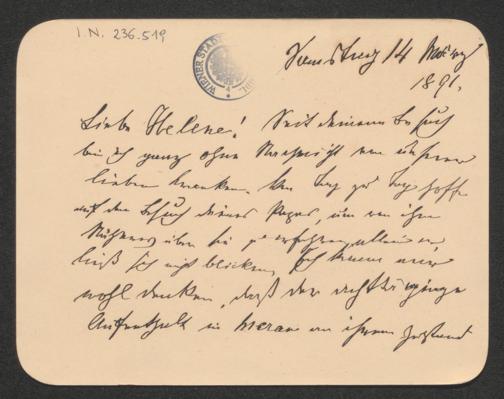 I.N. 236.519
WIENER STADT
Samstag 14 März
1891.
Liebe Helene! Seit deinem Besuch
bin ich ganz ohne Nachricht von unserer
lieben Kranken. Von Tag zu Tag hoffe
auf den Besuch deines Papas, um von ihm
Näheres über sie zu erfahren, allein er
ließ sich nicht blicken. Ich kann mir
wohl denken, daß der achttägige
Aufenthalt in Meran an ihrem Zustand